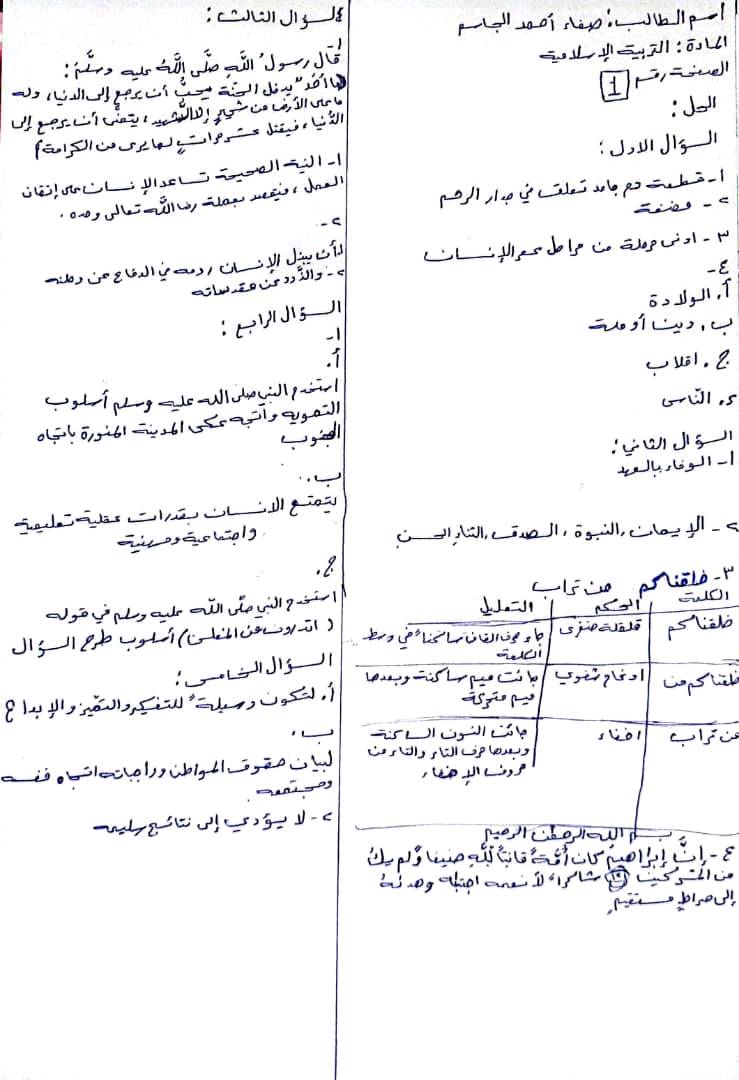 اسم الطالب: صفاء أحمد الجاسم
المادة: التربية الإسلامية
الصفحة رقم 1
الحل:
السؤال الاول:
١- قطعة دم جامد تعلقت في جدار الرحم
٢- مضغة
٣- ادنى مرحلة من مراحل عمر الإنسان
٤-
أ. الولادة
ب. دينا أو ملة
ج. اقلاب
د. النّاسى
السؤال الثاني:
١- الوفاء بالعهد
٢- الإيمان، النبوة، الصدق، الثناء الحسن
٣- خلقناكم من تراب
الكلمة الحكم التعليل
خلقناكم قلقلة صغرى جاء حرف القاف ساكناً في وسط
الكلمة
خلقناكم من ادغام شفوي جائت ميم ساكنة وبعدها
ميم متحركة
من تراب اخفاء جائت النون الساكنة
وبعدها حرف التاء والتاء من
حروف الإخفاء
بسم الله الرحمن الرحيم
٤- إنَّ إبراهيمَ كان أُمَّةً قانتاً لِّلَّهِ حنيفا ولم يكُ
من المشركين شاكراً لأنعمه اجتبٰه وهدٰىهُ
إلى صراطٍ مستقيمٍ
السؤال الثالث:
١-
قال رسولُ اللَّهِ صلَّى اللَّهُ عليه وسلَّمَ:
(ما أحدٌ يدخل الجنَّة يحبُّ أن يرجع إلى الدنيا، وله
ما على الأرض من شيءٍ إلا الشهيد، يتمنَّى أن يرجع إلى
الدُّنيا، فيقتل عشر مراتٍ لما يرى من الكرامة)
١- النية الصحيحة تساعد الإنسان على إتقان
العمل، فيقصد بعمله رضا اللَّه تعالى وحده.
٢-
١- أن يبذل الإنسان دمه في الدفاع عن وطنه
٢- والذَّود عن مقدساته
السؤال الرابع:
١-
أ.
استخدم النبي صلى الله عليه وسلم أسلوب
التمويه واتجه عكس المدينة المنورة باتجاه
الجنوب
ب.
يتمتع الانسان بقدرات عقلية تعليمية
واجتماعية ومهنية
ج.
استخدم النبي صلّى اللَّه عليه وسلم في قوله
(اتدرون من المفلس) أسلوب طرح السؤال
السؤال الخامس:
أ. لتكون وسيلةً للتفكير والتميّز والإبداع
ب.
لبيان حقوق المواطن وواجباته اتجاه نفسه
ومجتمعه
٢- لا يؤدي إلى نتائج سليمه